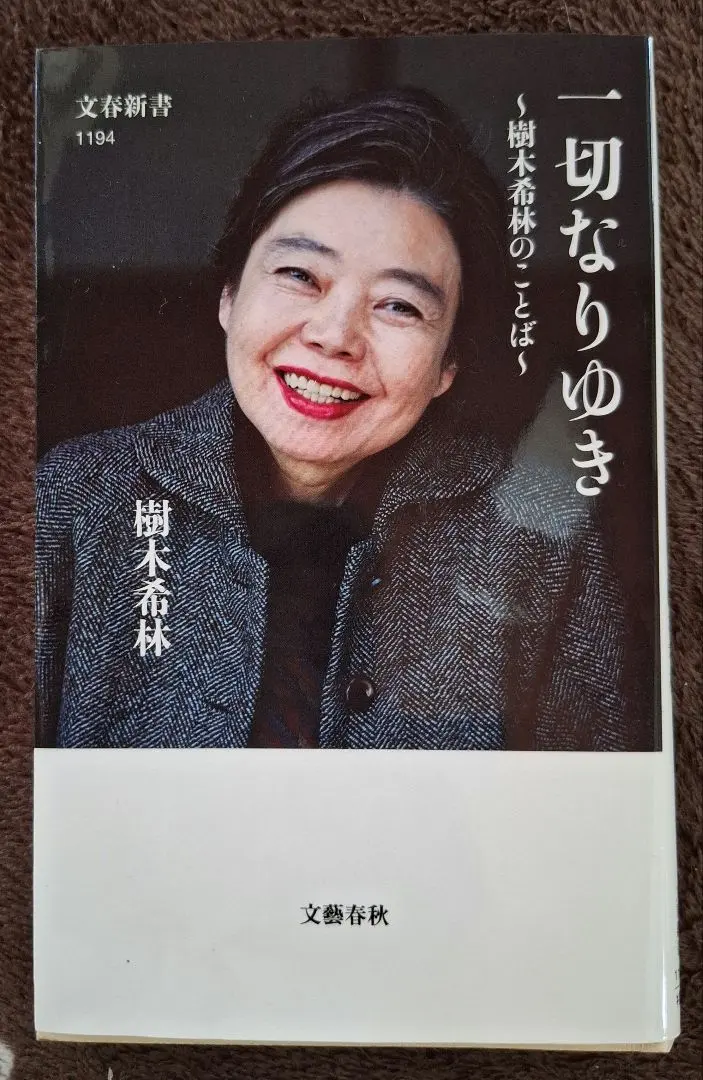 文春新書
1194
一切なりゆき
〜樹木希林のことば〜
樹木希林
文藝春秋